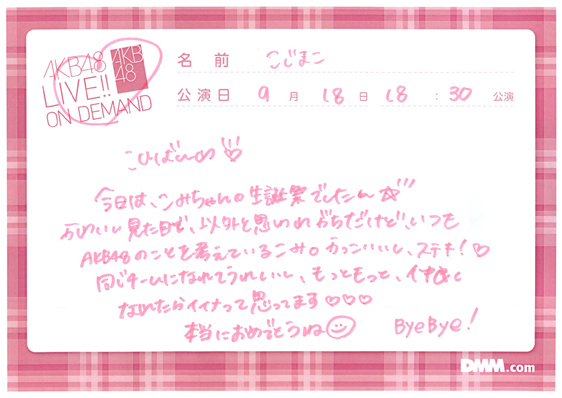 AKB48
LIVE!!
ON DEMAND
AKB
48
名 前 こじまこ
公演日 9 月 18 日 18 : 30 公演
こんばんわ♡
今日は、こみちゃんの生誕祭でしたん☆
かわいい見た目で、以外と思いわれがちだけど、いつも
AKB48のことを考えているこみ。かっこいいし、ステキ!♡
同じチームになれてうれしいし、もっともっと、
なれたらイイナって思ってます♡♡♡
本当におめでとうね
ByeBye!
DMM.com